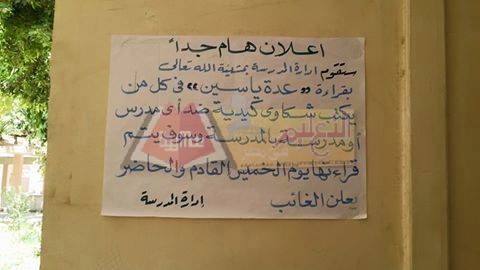 اعلان هام جداً
ستقوم ادارة المدرسة بمشيئة الله تعالى
بقراءة "عدة ياسين" فى كل من
يكتب شكاوى كيدية ضد أى مدرس
أو مدرسة بالمدرسة وسوف يتم
قراءتها يوم الخميس القادم والحاضر
يعلن الغائب
ادارة المدرسة